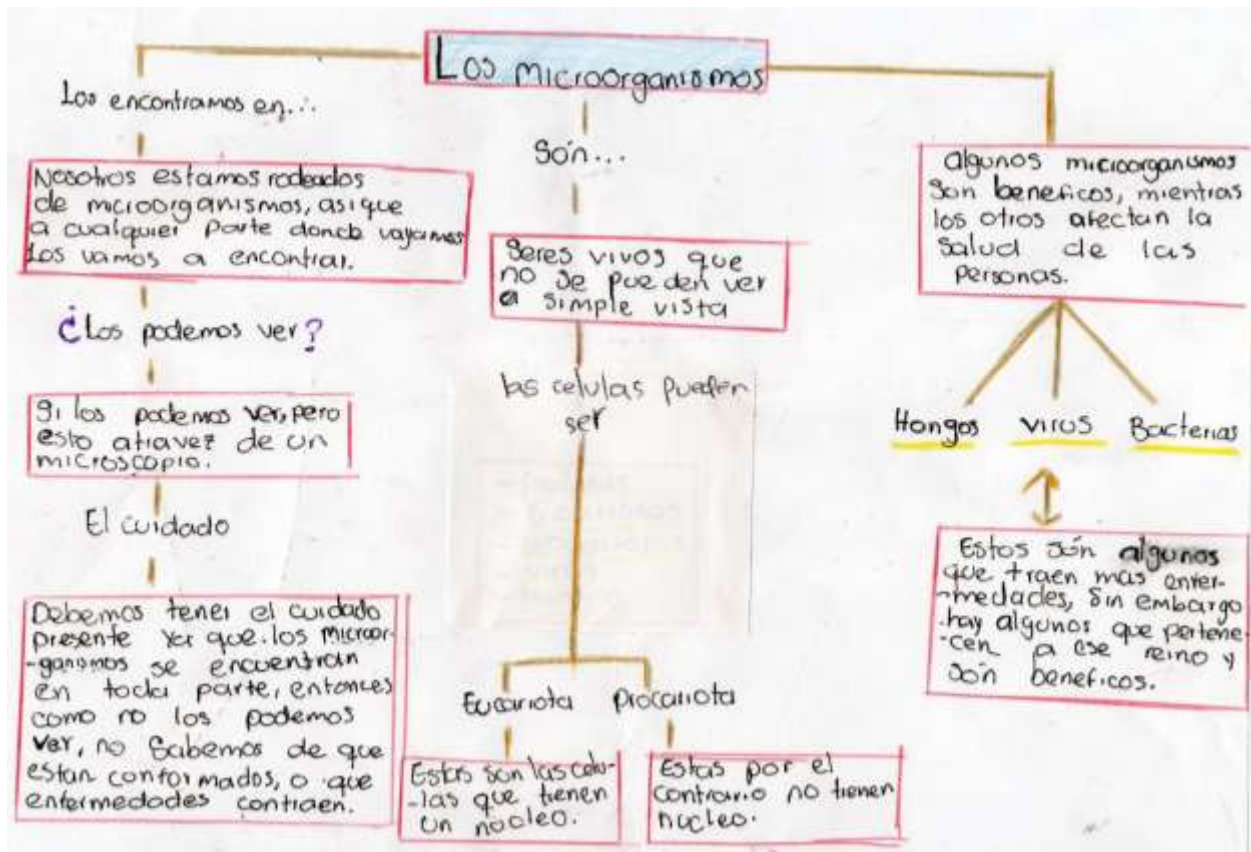 Los microorganismos
Los encontramos en...
Nosotros estamos rodeados
de microorganismos, asi que
a cualquier parte donde vayamos
los vamos a encontrar.
¿Los podemos ver?
Si los podemos ver, pero
esto atravez de un
microscopio.
El cuidado
Debemos tener el cuidado
presente ya que los microor-
-ganismos se encuentran
en toda parte, entonces
como no los podemos
ver, no sabemos de que
estan conformados, o que
enfermedades contraen.
Són...
Seres vivos que
no se pueden ver
a simple vista
las celulas pueden
ser
Eucariota
Procariota
Estas son las celu-
-las que tienen
un nucleo.
Estas por el
contrario no tienen
nucleo.
algunos microorganismos
son beneficos, mientras
los otros afectan la
salud de las
personas.
Hongos
virus
Bacterias
Estos són algunos
que traen mas enfer-
-medades, sin embargo
hay algunos que pertene-
-cen a ese reino y
són beneficos.